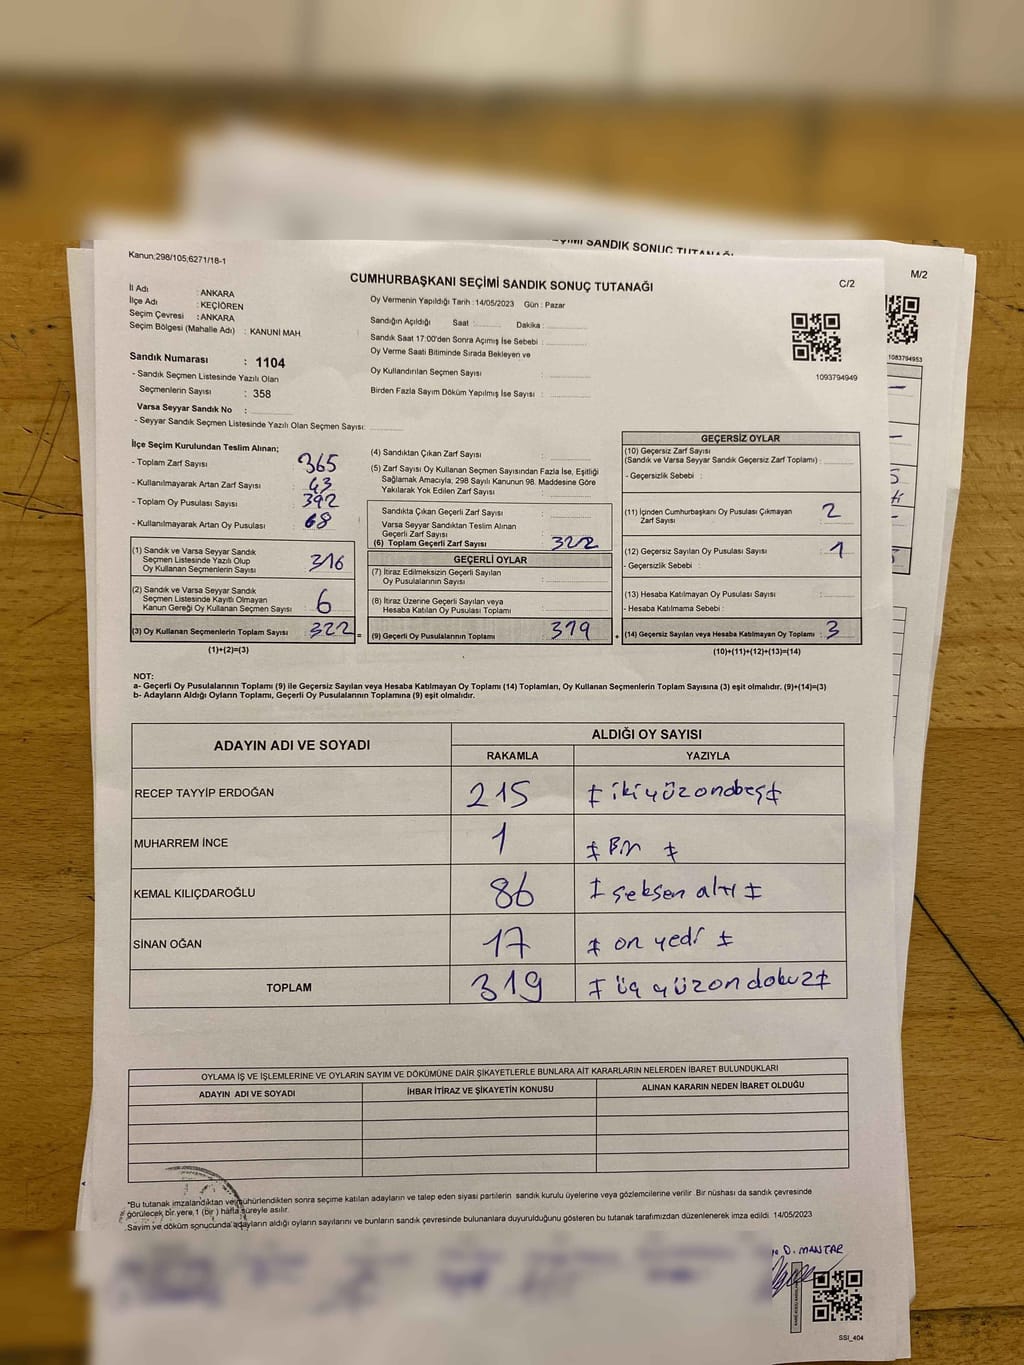 SEÇİMİ SANDIK SONUÇ TUTANAĞI
M/2
1083794953
Kanun;298/105;6271/18-1
CUMHURBAŞKANI SEÇİMİ SANDIK SONUÇ TUTANAĞI
C/2
İl Adı : ANKARA
İlçe Adı : KEÇİÖREN
Seçim Çevresi : ANKARA
Seçim Bölgesi (Mahalle Adı) : KANUNİ MAH
Sandık Numarası : 1104
- Sandık Seçmen Listesinde Yazılı Olan
Seçmenlerin Sayısı : 358
Varsa Seyyar Sandık No :
- Seyyar Sandık Seçmen Listesinde Yazılı Olan Seçmen Sayısı:
Oy Vermenin Yapıldığı Tarih : 14/05/2023 Gün : Pazar
Sandığın Açıldığı Saat : Dakika :
Sandık Saat 17:00'den Sonra Açımış İse Sebebi :
Oy Verme Saati Bitiminde Sırada Bekleyen ve
Oy Kullandırılan Seçmen Sayısı :
Birden Fazla Sayım Döküm Yapılmış İse Sayısı :
1093794949
İlçe Seçim Kurulundan Teslim Alınan;
- Toplam Zarf Sayısı : 365
- Kullanılmayarak Artan Zarf Sayısı : 43
- Toplam Oy Pusulası Sayısı : 392
- Kullanılmayarak Artan Oy Pusulası : 68
(1) Sandık ve Varsa Seyyar Sandık
Seçmen Listesinde Yazılı Olup
Oy Kullanan Seçmenlerin Sayısı : 316
(2) Sandık ve Varsa Seyyar Sandık
Seçmen Listesinde Kayıtlı Olmayan
Kanun Gereği Oy Kullanan Seçmen Sayısı : 6
(3) Oy Kullanan Seçmenlerin Toplam Sayısı : 322 =
(1)+(2)=(3)
(4) Sandıktan Çıkan Zarf Sayısı :
(5) Zarf Sayısı Oy Kullanan Seçmen Sayısından Fazla İse, Eşitliği
Sağlamak Amacıyla, 298 Sayılı Kanunun 98. Maddesine Göre
Yakılarak Yok Edilen Zarf Sayısı :
Sandıkta Çıkan Geçerli Zarf Sayısı :
Varsa Seyyar Sandıktan Teslim Alınan
Geçerli Zarf Sayısı :
(6) Toplam Geçerli Zarf Sayısı : 322
GEÇERLİ OYLAR
(7) İtiraz Edilmeksizin Geçerli Sayılan
Oy Pusulalarının Sayısı :
(8) İtiraz Üzerine Geçerli Sayılan veya
Hesaba Katılan Oy Pusulası Toplamı :
(9) Geçerli Oy Pusulalarının Toplamı : 319 +
GEÇERSİZ OYLAR
(10) Geçersiz Zarf Sayısı
(Sandık ve Varsa Seyyar Sandık Geçersiz Zarf Toplamı) :
- Geçersizlik Sebebi :
(11) İçinden Cumhurbaşkanı Oy Pusulası Çıkmayan
Zarf Sayısı : 2
(12) Geçersiz Sayılan Oy Pusulası Sayısı : 1
- Geçersizlik Sebebi :
(13) Hesaba Katılmayan Oy Pusulası Sayısı :
- Hesaba Katılmama Sebebi :
(14) Geçersiz Sayılan veya Hesaba Katılmayan Oy Toplamı : 3
(10)+(11)+(12)+(13)=(14)
NOT:
a- Geçerli Oy Pusulalarının Toplamı (9) ile Geçersiz Sayılan veya Hesaba Katılmayan Oy Toplamı (14) Toplamları, Oy Kullanan Seçmenlerin Toplam Sayısına (3) eşit olmalıdır. (9)+(14)=(3)
b- Adayların Aldığı Oyların Toplamı, Geçerli Oy Pusulalarının Toplamına (9) eşit olmalıdır.
ADAYIN ADI VE SOYADI ALDIĞI OY SAYISI
RAKAMLA YAZIYLA
RECEP TAYYİP ERDOĞAN 215 ikiyüzonbeş
MUHARREM İNCE 1 Bir
KEMAL KILIÇDAROĞLU 86 seksen altı
SİNAN OĞAN 17 on yedi
TOPLAM 319 üç yüzon dokuz
OYLAMA İŞ VE İŞLEMLERİNE VE OYLARIN SAYIM VE DÖKÜMÜNE DAİR ŞİKAYETLERLE BUNLARA AİT KARARLARIN NELERDEN İBARET BULUNDUKLARI
ADAYIN ADI VE SOYADI İHBAR İTİRAZ VE ŞİKAYETİN KONUSU ALINAN KARARIN NEDEN İBARET OLDUĞU
*Bu tutanak imzalandıktan ve mühürlendikten sonra seçime katılan adayların ve talep eden siyasi partilerin sandık kurulu üyelerine veya gözlemcilerine verilir. Bir nüshası da sandık çevresinde
görülecek bir yere 1 (bir) hafta süreyle asılır.
Sayım ve döküm sonucunda adayların aldığı oyların sayılarını ve bunların sandık çevresinde bulunanlara duyurulduğunu gösteren bu tutanak tarafımızdan düzenlenerek imza edildi. 14/05/2023
D. MANTAR
SSI_404